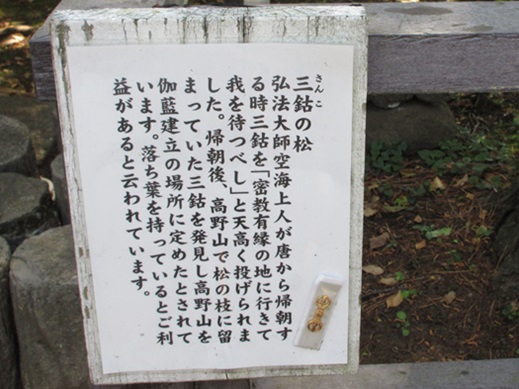 三鈷の松
さんこ
弘法大師空海上人が唐から帰朝す
る時三鈷を「密教有縁の地に行きて
我を待つべし」と天高く投げられま
した。帰朝後、高野山で松の枝に留
まっていた三鈷を発見し高野山を
伽藍建立の場所に定めたとされて
います。落ち葉を持っているとご利
益があると云われています。